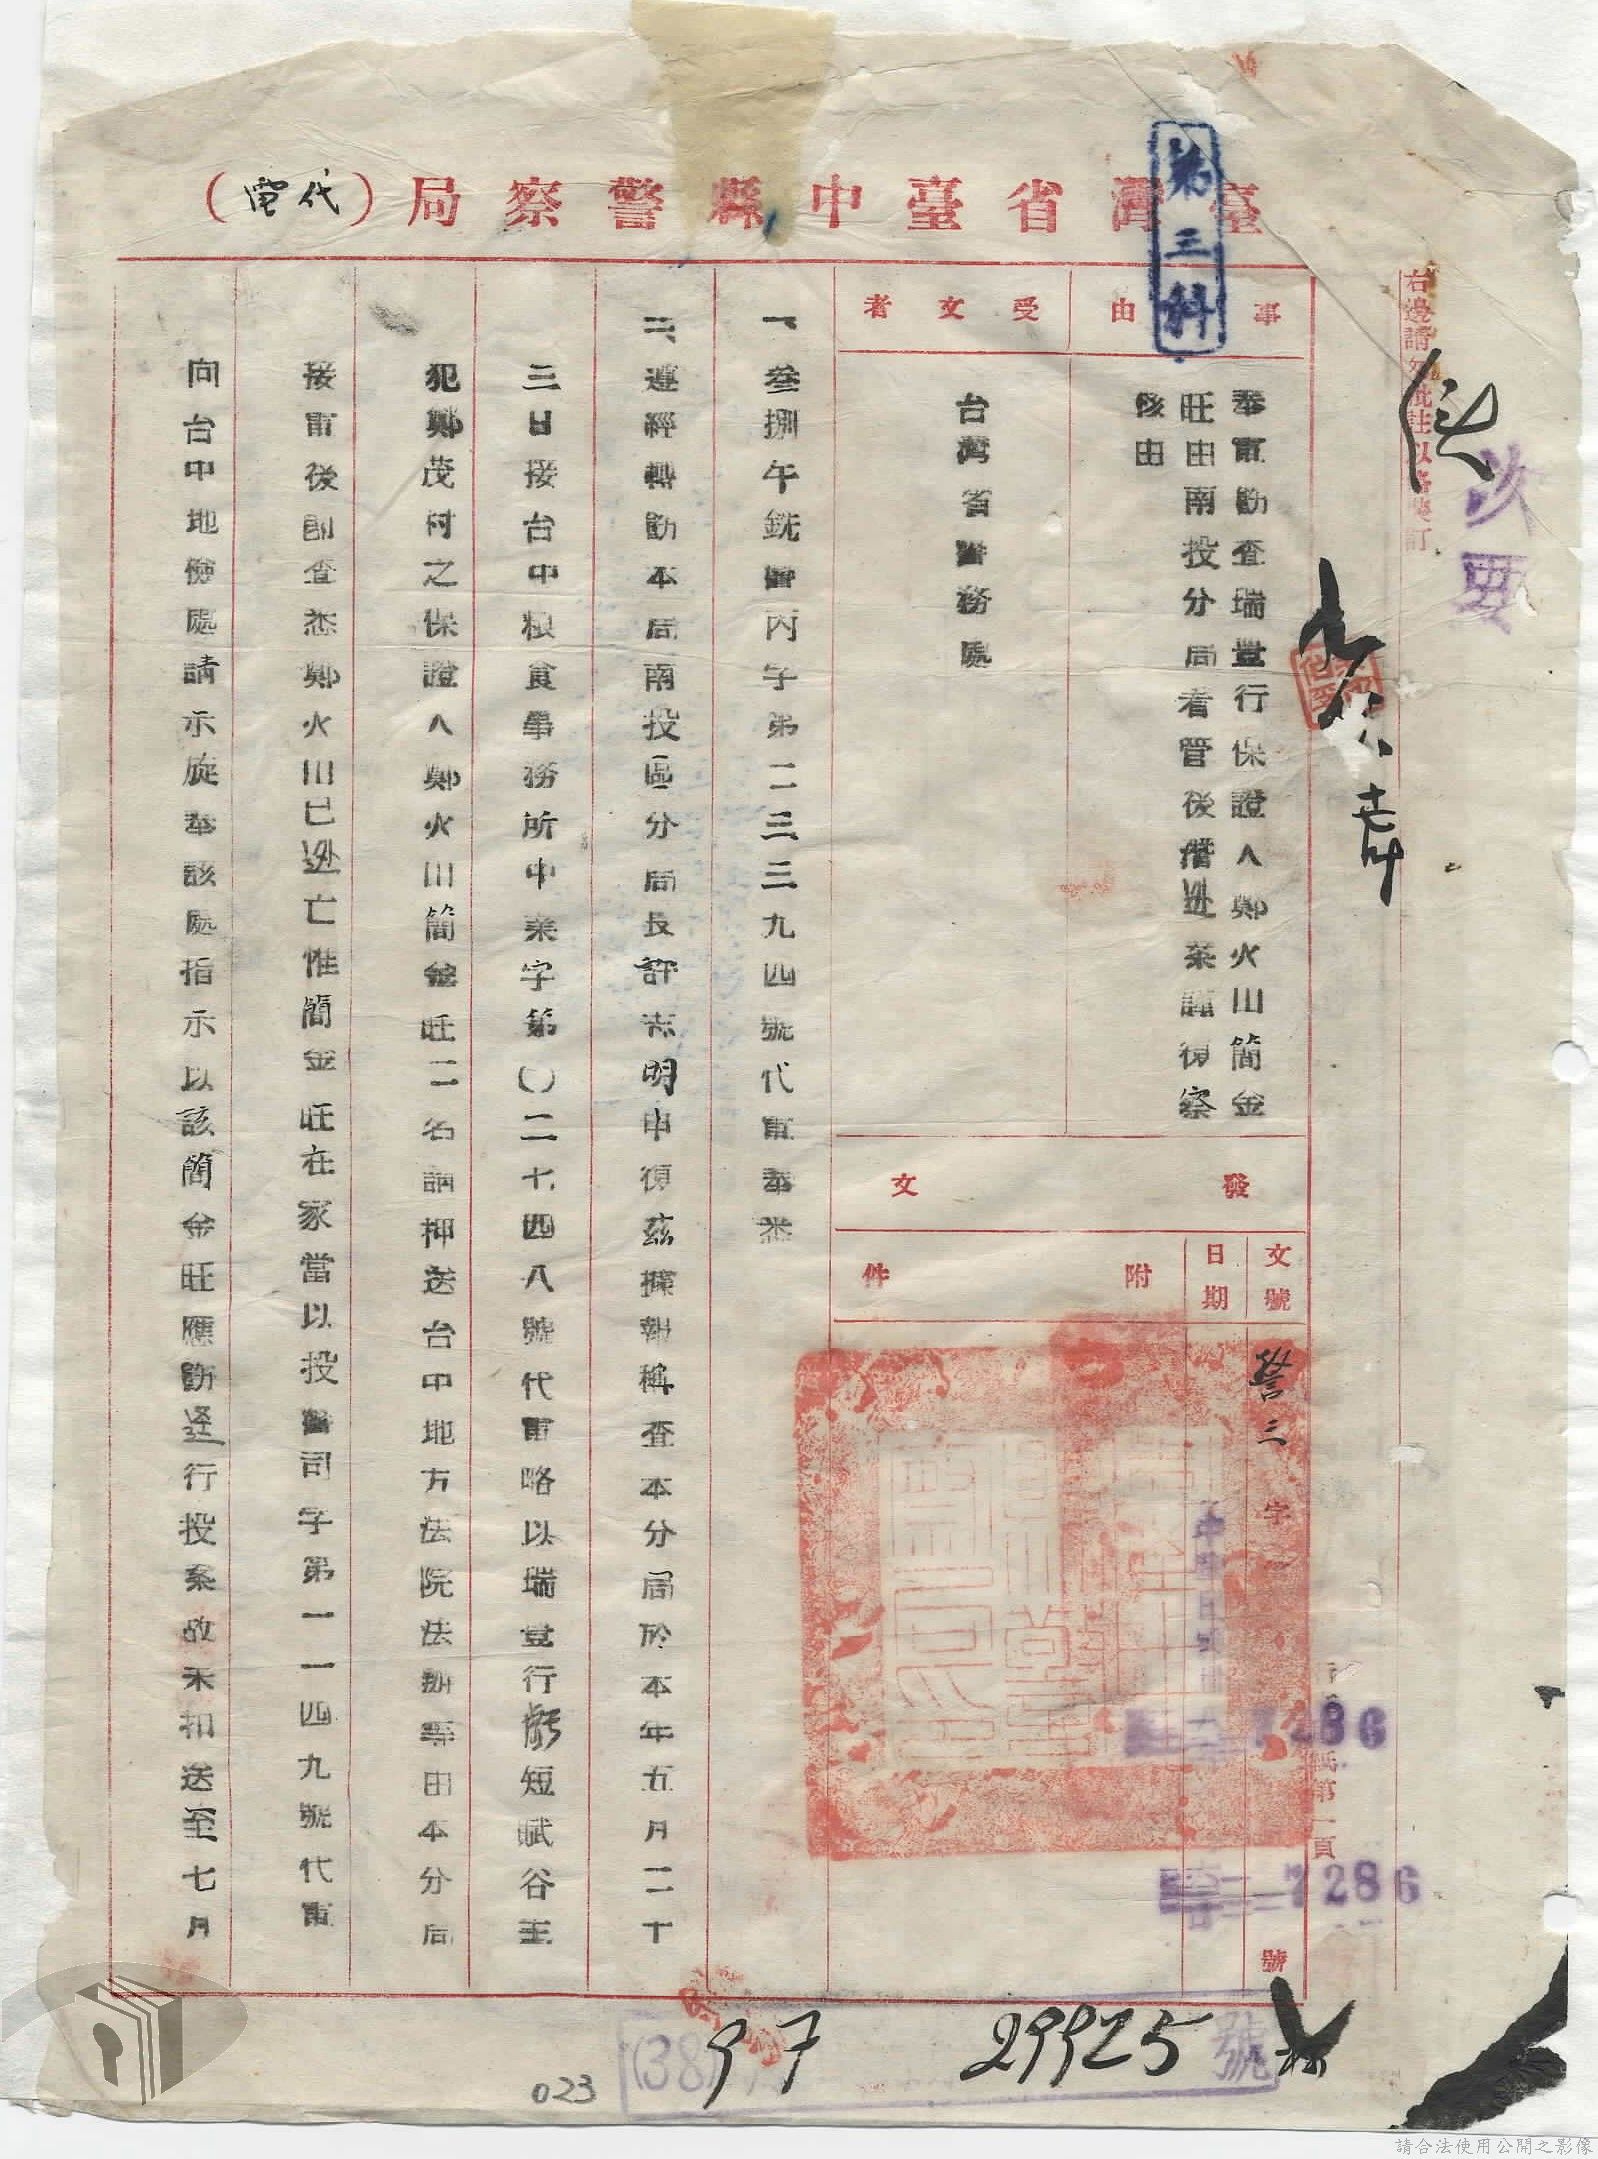 臺灣省臺中縣警察局（代電）
第三科
次要
右邊請勿批註以備裝訂
事由
奉電勸查瑞豐行保證人鄭火川簡金
旺由南投分局看管後潛逃案謹復察
核由
受文者
台灣省警務處
發文
文號
警三字
號
日期
附件
7286
7286
一、叁捌午銑警丙字第二三三九四號代電奉悉
二、遵經轉飭本局南投區分局長許志明申復茲據報稱查本分局於本年五月二十
三日接台中粮食事務所中業字第〇二七四八號代電略以瑞豐行虧短賦谷主
犯鄭茂村之保證人鄭火川簡金旺二名請押送台中地方法院法辦等由本分局
接電後卽查悉鄭火川已逃亡惟簡金旺在家當以投警司字第一一四九號代電
向台中地檢處請示旋奉該處指示以該簡金旺應飭逕行投案故未扣送至七月
(38)
9 7
29925
號
023
請合法使用公開之影像